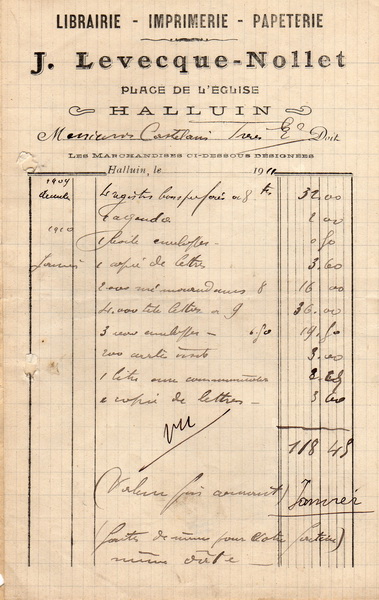 LIBRAIRIE - IMPRIMERIE - PAPETERIE
J. Levecque-Nollet
PLACE DE L'ÉGLISE
HALLUIN
Messieurs Castelani Doit
LES MARCHANDISES CI-DESSOUS DÉSIGNÉES
Halluin, le 19
1909 4 registres à 8 frs 32.00
2 agenda 2.00
1910 1 boite enveloppes 0.50
Janvier 2 copie de lettres 3.60
2000 mémorandums 8 16.00
4.000 tête lettres à 9 36.00
3 000 enveloppes 6.50 19.50
200 carte visite 3.00
1 litre encre
2 copie de lettres 3.60
vu
118 45
(Valeur fin courant) Janvier
pour votre facture)
même date